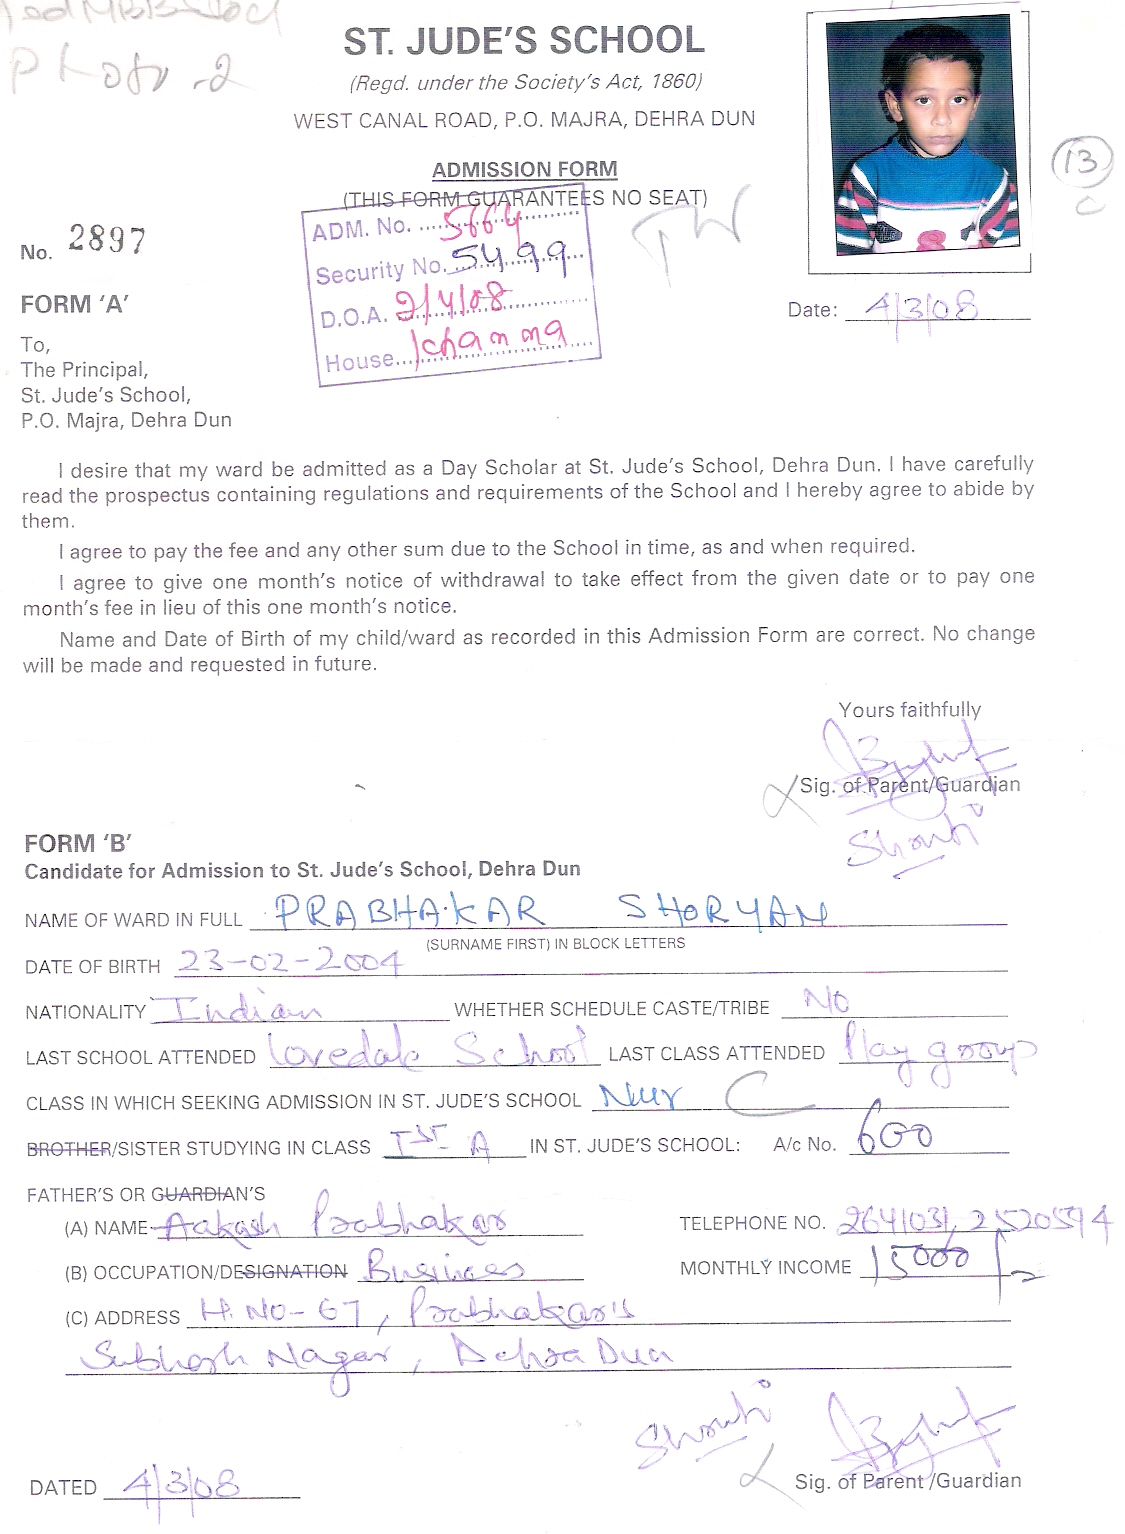 Photo -2
ST. JUDE'S SCHOOL
(Regd. under the Society's Act, 1860)
WEST CANAL ROAD, P.O. MAJRA, DEHRA DUN
ADMISSION FORM
(THIS FORM GUARANTEES NO SEAT)
13
C
TW
No. 2897
ADM. No. 5664
Security No. 5499
D.O.A. 2/4/08
House Ichamma
FORM 'A'
Date: 4/3/08
To,
The Principal,
St. Jude's School,
P.O. Majra, Dehra Dun
I desire that my ward be admitted as a Day Scholar at St. Jude's School, Dehra Dun. I have carefully
read the prospectus containing regulations and requirements of the School and I hereby agree to abide by
them.
I agree to pay the fee and any other sum due to the School in time, as and when required.
I agree to give one month's notice of withdrawal to take effect from the given date or to pay one
month's fee in lieu of this one month's notice.
Name and Date of Birth of my child/ward as recorded in this Admission Form are correct. No change
will be made and requested in future.
Yours faithfully
Sig. of Parent/Guardian
FORM 'B'
Candidate for Admission to St. Jude's School, Dehra Dun
NAME OF WARD IN FULL PRABHAKAR SHORYAN
(SURNAME FIRST) IN BLOCK LETTERS
DATE OF BIRTH 23-02-2004
NATIONALITY Indian WHETHER SCHEDULE CASTE/TRIBE NO
LAST SCHOOL ATTENDED Lovedale School LAST CLASS ATTENDED Play group
CLASS IN WHICH SEEKING ADMISSION IN ST. JUDE'S SCHOOL Nur C
BROTHER/SISTER STUDYING IN CLASS IST A IN ST. JUDE'S SCHOOL: A/c No. 600
FATHER'S OR GUARDIAN'S
(A) NAME Aakash Prabhakar TELEPHONE NO. 2641031, 2520594
(B) OCCUPATION/DESIGNATION Business MONTHLY INCOME 15000/-
(C) ADDRESS H.NO-67, Prabhakar's
Subhash Nagar, Dehra Dun
DATED 4/3/08
Sig. of Parent /Guardian